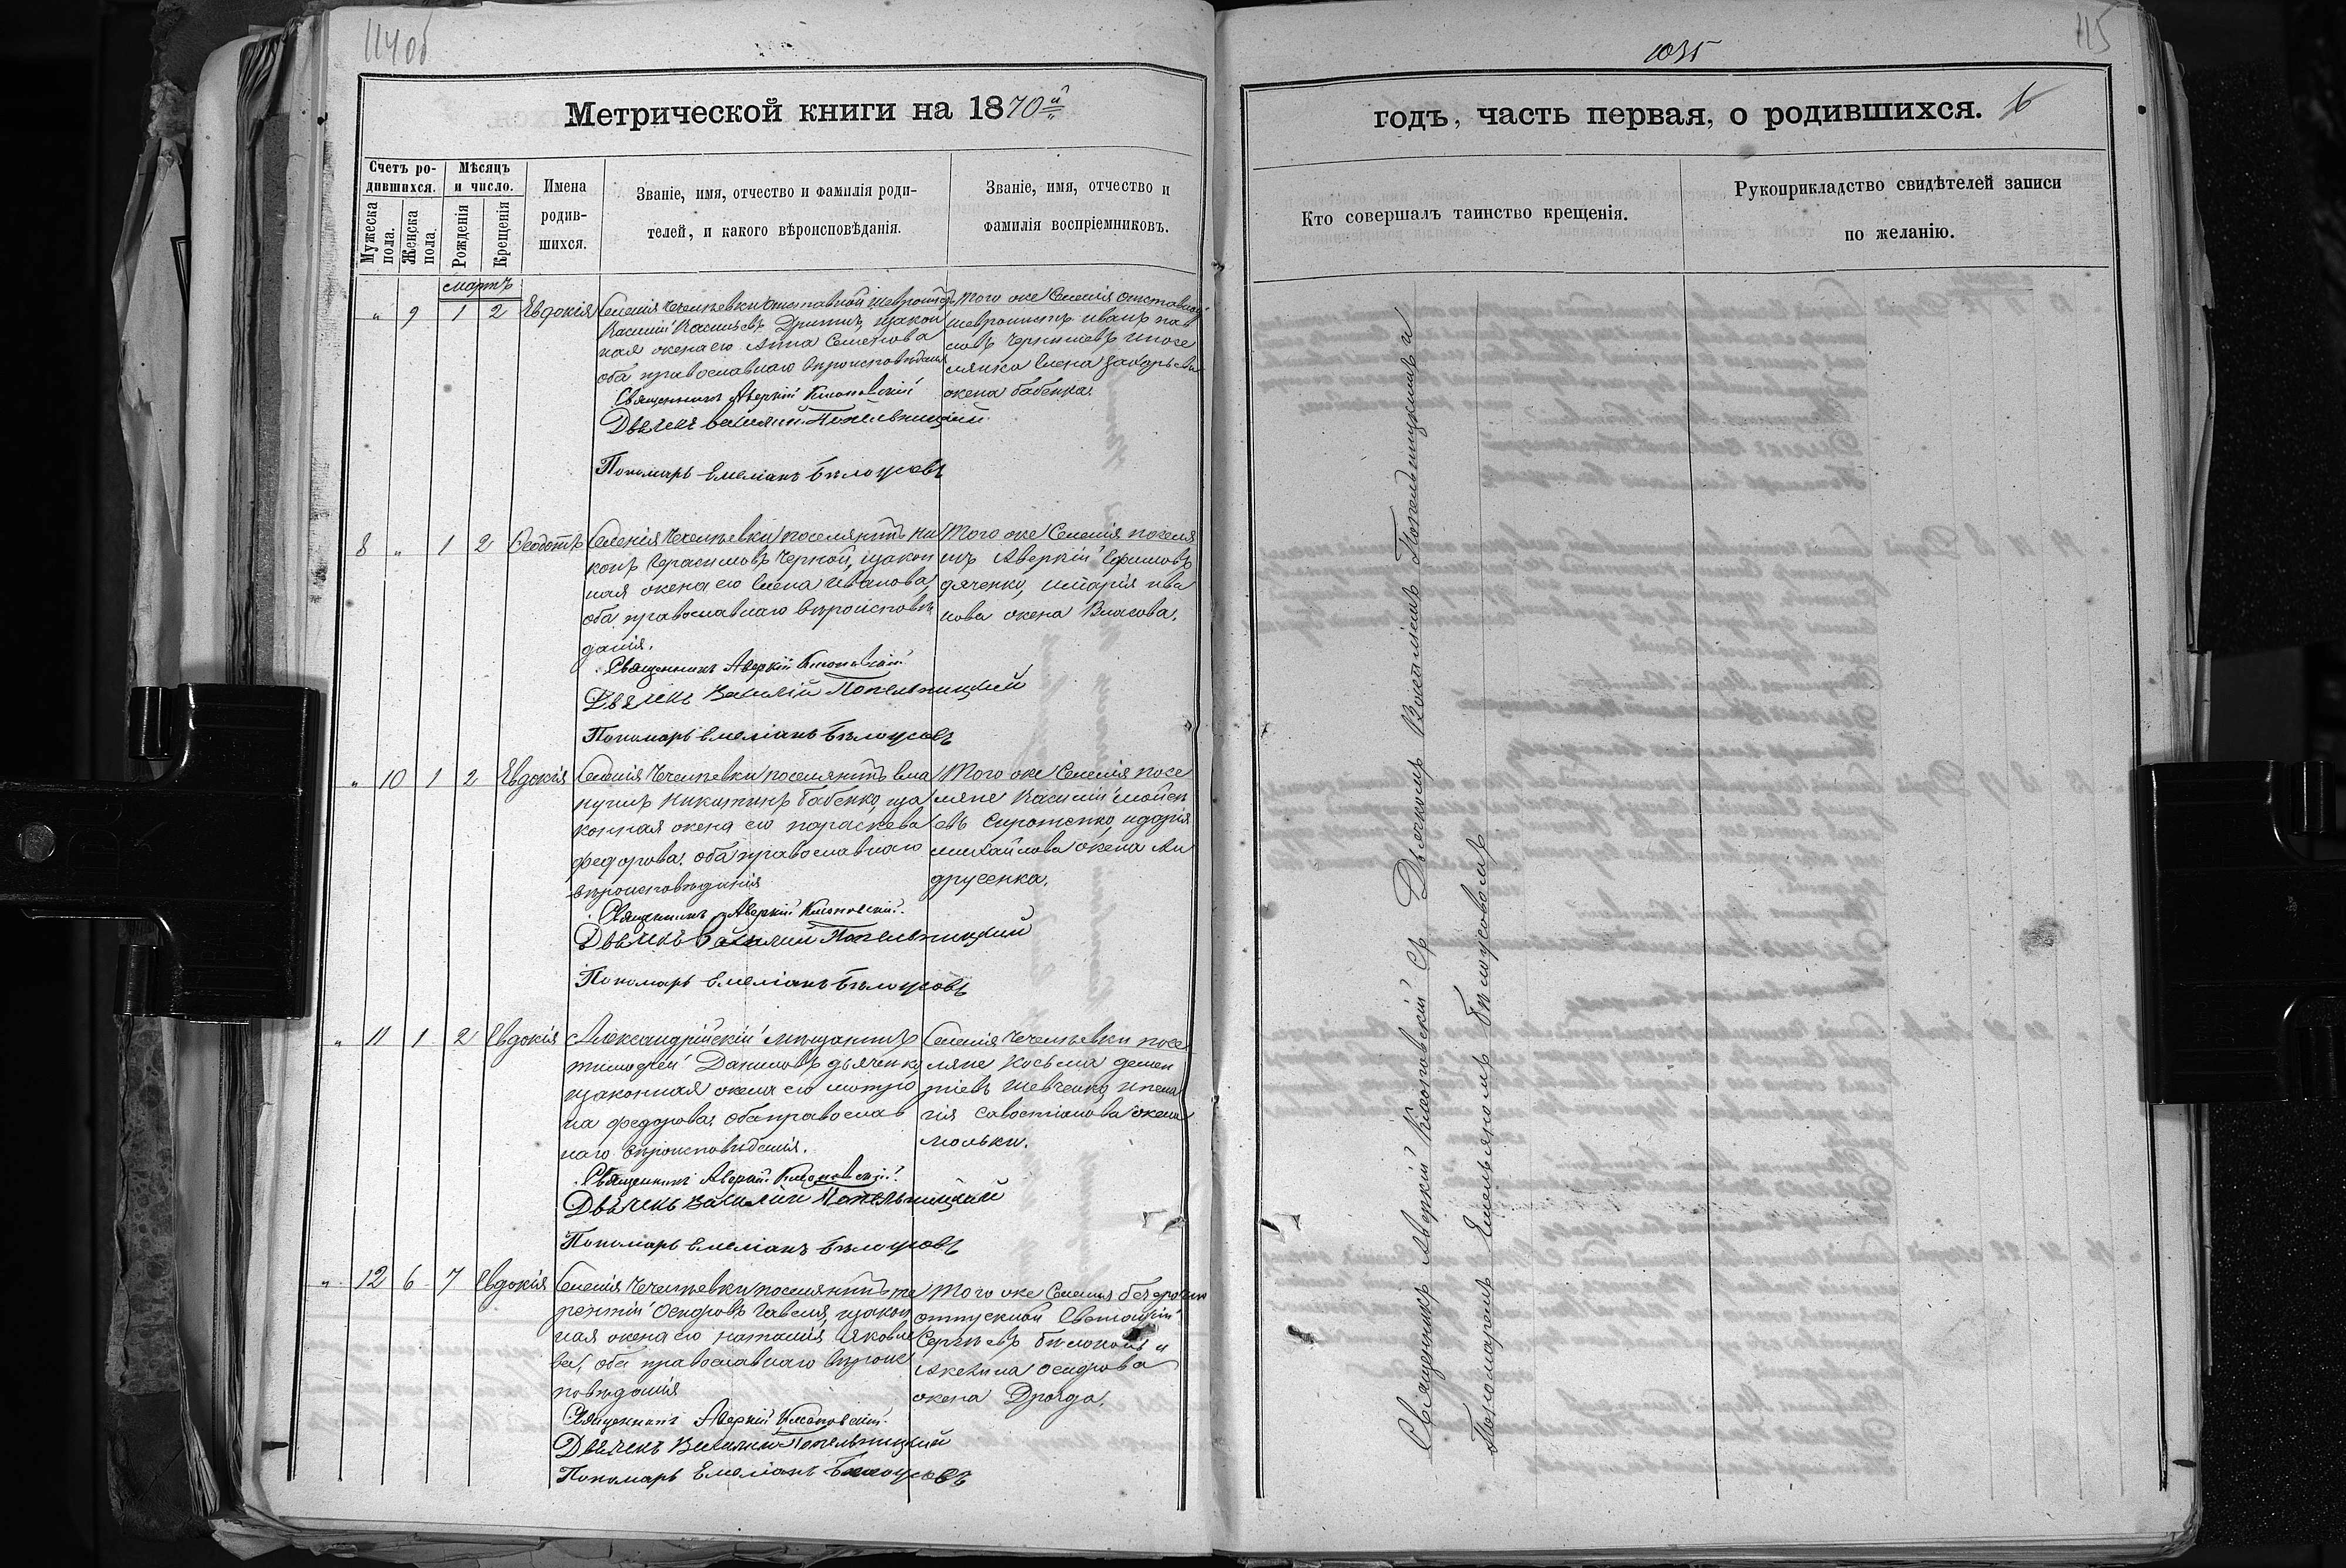 114об
Метрической книги на 1870й
Счетъ ро-
дившихся.
Мужеска
пола.
Женска
пола.
Мѣсяцъ
и число.
Рожденія
Крещенія
Имена
родив-
шихся.
Званіе, имя, отчество и фамилія роди-
телей, и какого вѣроисповѣданія.
Званіе, имя, отчество и
фамилія воспріемниковъ.
мартъ
" 9 1 2 Евдокія
Василій Васильевъ закон
ная жена его Анна Семенова
оба православнаго вѣроисповѣданія
Священникъ Аверкій Клоповскій
Дьячекъ Василий Попельницкий
Пономарь Емеліанъ Бѣлоусовъ
того же Селенія отставной
шевронистъ иванъ пав
ловъ Чернышевъ и посе
лянка Елена
жена бабенка.
8 " 1 2 Феодотъ
Селенія Чечелѣевки поселянинъ ни
конъ Герасимовъ Черной, изакон
ная жена его Елена иванова,
оба православнаго вѣроисповѣ
данія.
Священникъ Аверкій Клоповскій
Дьячекъ Василій Попельницкий
Пономарь Емеліанъ Бѣлоусовъ
Того же Селенія поселя
нъ Аверкій Ефимовъ
дяченко, имарія ива
нова жена Власова.
" 10 1 2 Евдокія
Селенія Чечелѣевки поселянинъ ема
нуилъ Никитинъ Бабенко, иза
конная жена его параскева
федорова. оба православнаго
вѣроисповѣданія
Священникъ Аверкій Клоповскій.
Дьячекъ Василий Попельницкий
Пономарь Емеліанъ Бѣлоусовъ
Того же Селенія посе
ляне Василій мойсе
евъ Сиротенко, идарія
михайлова жена Ан
друсенка.
" 11 1 2 Евдокія
Александрійскій мѣщанинъ
тимофей Даниловъ дьяченко,
изаконная жена его матро
на федорова, оба православ
наго вѣроисповѣданія.
Священникъ Аверкій Клоповскій.
Дьячекъ Василий Попельницкий
Пономарь Емеліанъ Бѣлоусовъ
Селенія Чечелѣевки посе
ляне Косьма демен
тіевъ Шевченко, ипела
гія Савостіанова жена
" 12 6 7 Евдокія
Селенія Чечелѣевки поселянинъ те
рентій Осиповъ изакон
ная жена его наталія яковле
ва, оба православнаго вѣроис
повѣданія
Священникъ Аверкій Клоповскій.
Дьячекъ Василий Попельницкий
Пономарь Емеліанъ Бѣлоусовъ
Того же Селенія безсрочно
отпускной
Сергѣевъ бѣлоконь и
Акелина Осипова
жена
115
1035
годъ, часть первая, о родившихся. 6
Кто совершалъ таинство крещенія.
Рукоприкладство свидѣтелей записи
по желанію.
Священникъ Аверкій Клоповскій Съ Дьячкомъ Василіемъ Попельницкимъ и
Пономаремъ Емельяномъ Бѣлоусовомъ